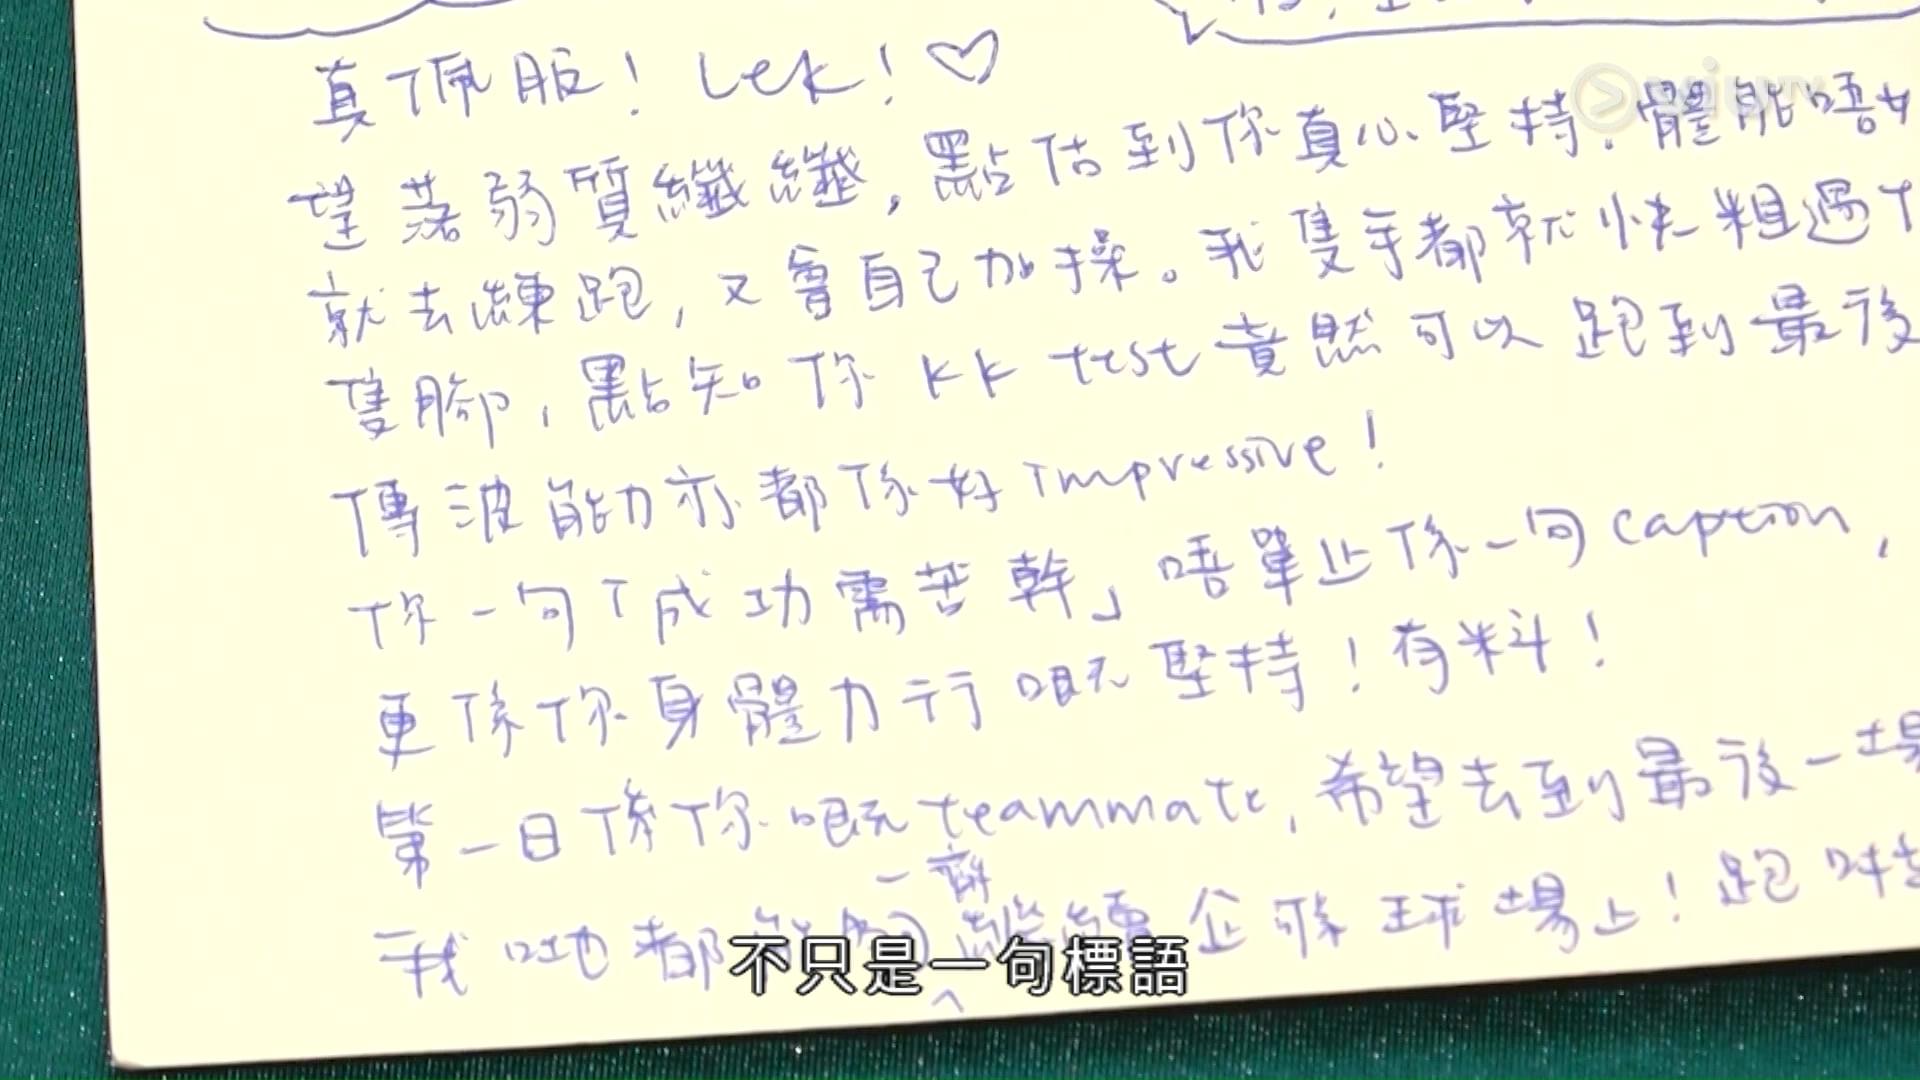 真佩服！Lek！♡
望落弱質纖纖，點估到你真心堅持。體能唔
就去練跑，又會自己加操。我隻手都就快粗過
隻腳，點知你 KK test 竟然可以跑到最後
傳波能力亦都係好 impressive！
你一句「成功需苦幹」唔單止係一句 caption，
更係你身體力行嘅堅持！有料！
第一日係你嘅 teammate，希望去到最後一場
一齊
我哋都能夠繼續企喺球場上！跑
不只是一句標語
viutv